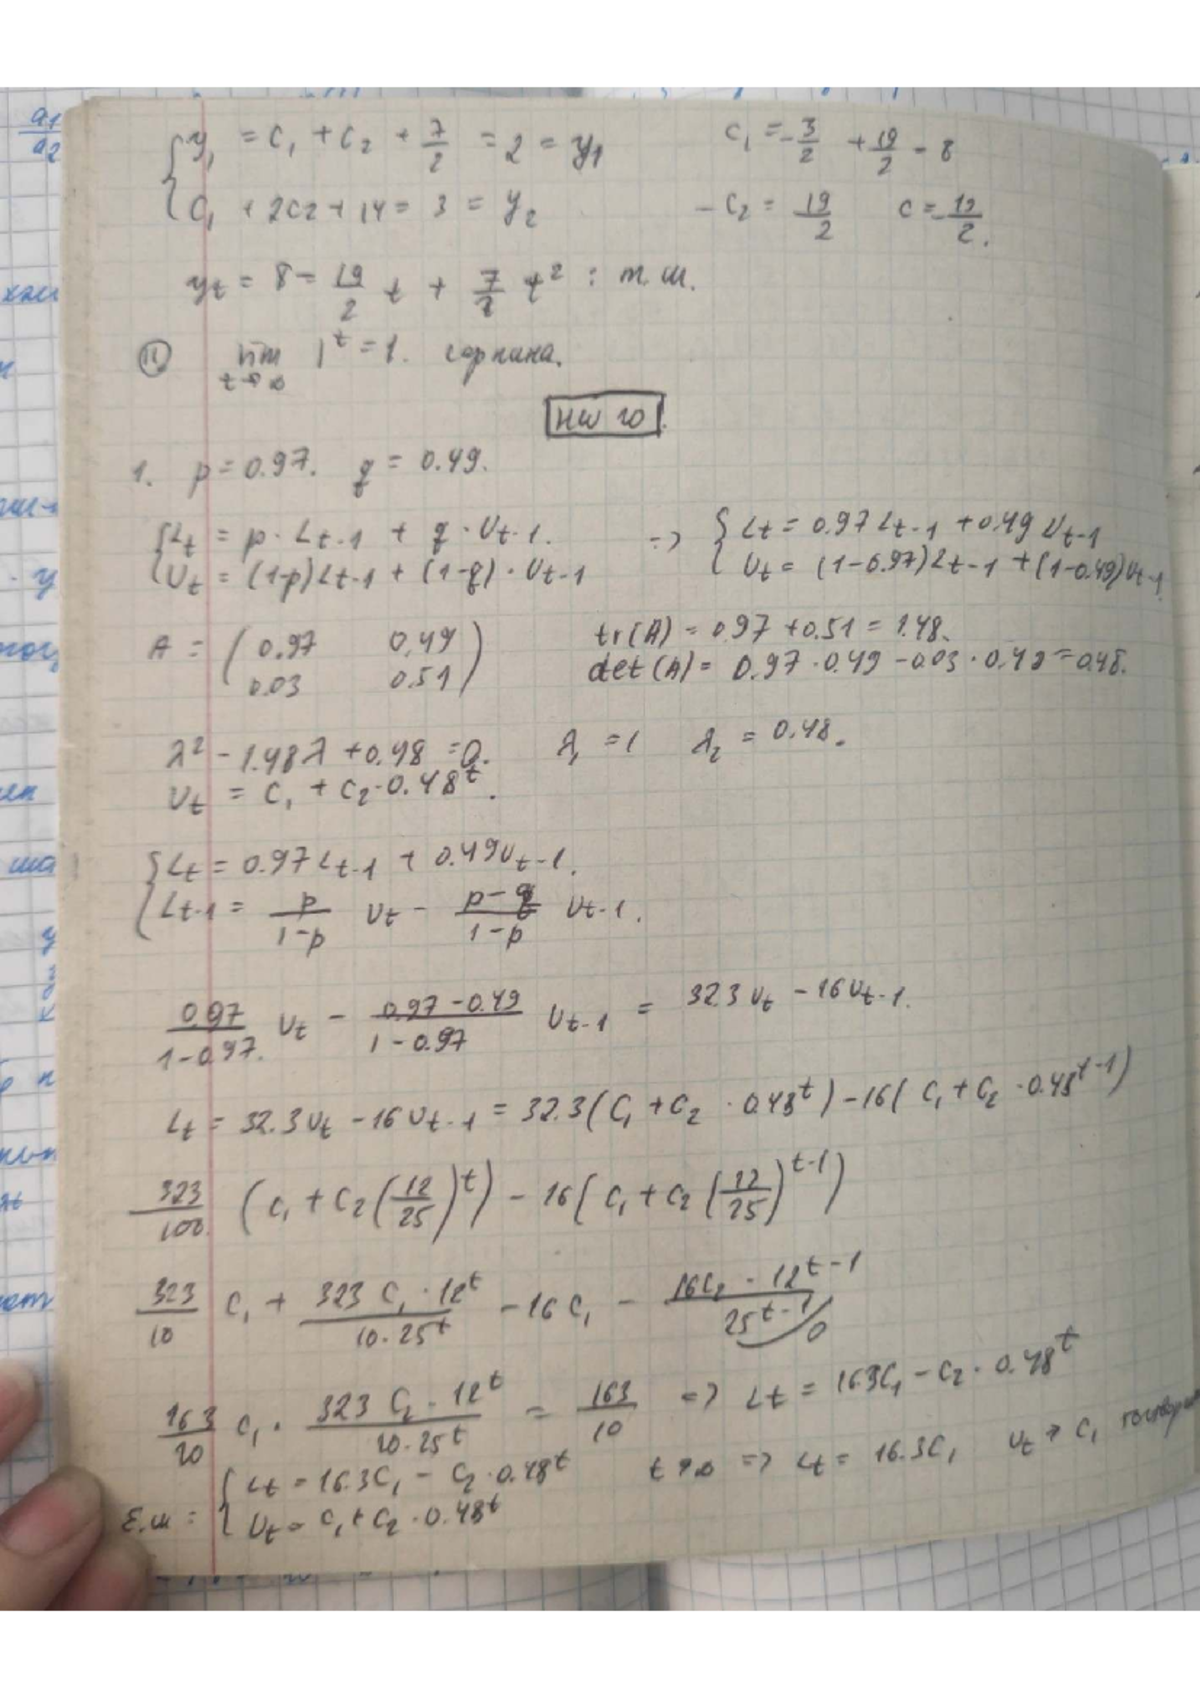 { y₁ = C₁ + C₂ + 7/2 = 2 = y₁    C₁ = -3/2 + 19/2 - 8
{ C₁ + 2C₂ + 14 = 3 = y₂    -C₂ = 19/2    C = -19/2.
yt = 8 - 19/2 t + 7/2 t² : т.ш.
lim t→∞ 1^t = 1.
HW 10.
1. p = 0.97. q = 0.49.
{ Lt = p · Lt-1 + q · Ut-1. => { Lt = 0.97Lt-1 + 0.49Ut-1
{ Ut = (1-p)Lt-1 + (1-q) · Ut-1    { Ut = (1-0.97)Lt-1 + (1-0.49)Ut-1.
A = ( 0.97 0.49 )    tr(A) = 0.97 + 0.51 = 1.48.
( 0.03 0.51 )    det(A) = 0.97 · 0.49 - 0.03 · 0.49 = 0.48.
λ² - 1.48λ + 0.48 = 0.    λ₁ = 1    λ₂ = 0.48.
Ut = C₁ + C₂ · 0.48^t.
{ Lt = 0.97Lt-1 + 0.49Ut-1.
{ Lt-1 = p/(1-p) Ut - (p-q)/(1-p) Ut-1.
0.97/(1-0.97.) Ut - (0.97-0.49)/(1-0.97) Ut-1 = 32.3Ut - 16Ut-1.
Lt = 32.3Ut - 16Ut-1 = 32.3(C₁ + C₂ · 0.48^t) - 16(C₁ + C₂ · 0.48^(t-1))
323/100. (C₁ + C₂(12/25)^t) - 16(C₁ + C₂(12/25)^(t-1))
323/10 C₁ + (323 C₁ · 12^t)/(10 · 25^t) - 16C₁ - (16C₂ · 12^(t-1))/25^(t-1)
163/10 C₁ · (323 C₂ · 12^t)/(10 · 25^t) = 163/10 => Lt = 16.3C₁ - C₂ · 0.48^t
{ Lt = 16.3C₁ - C₂ · 0.48^t    t→∞ => Lt = 16.3C₁    Ut → C₁
Е.ш = { Ut = C₁ + C₂ · 0.48^t